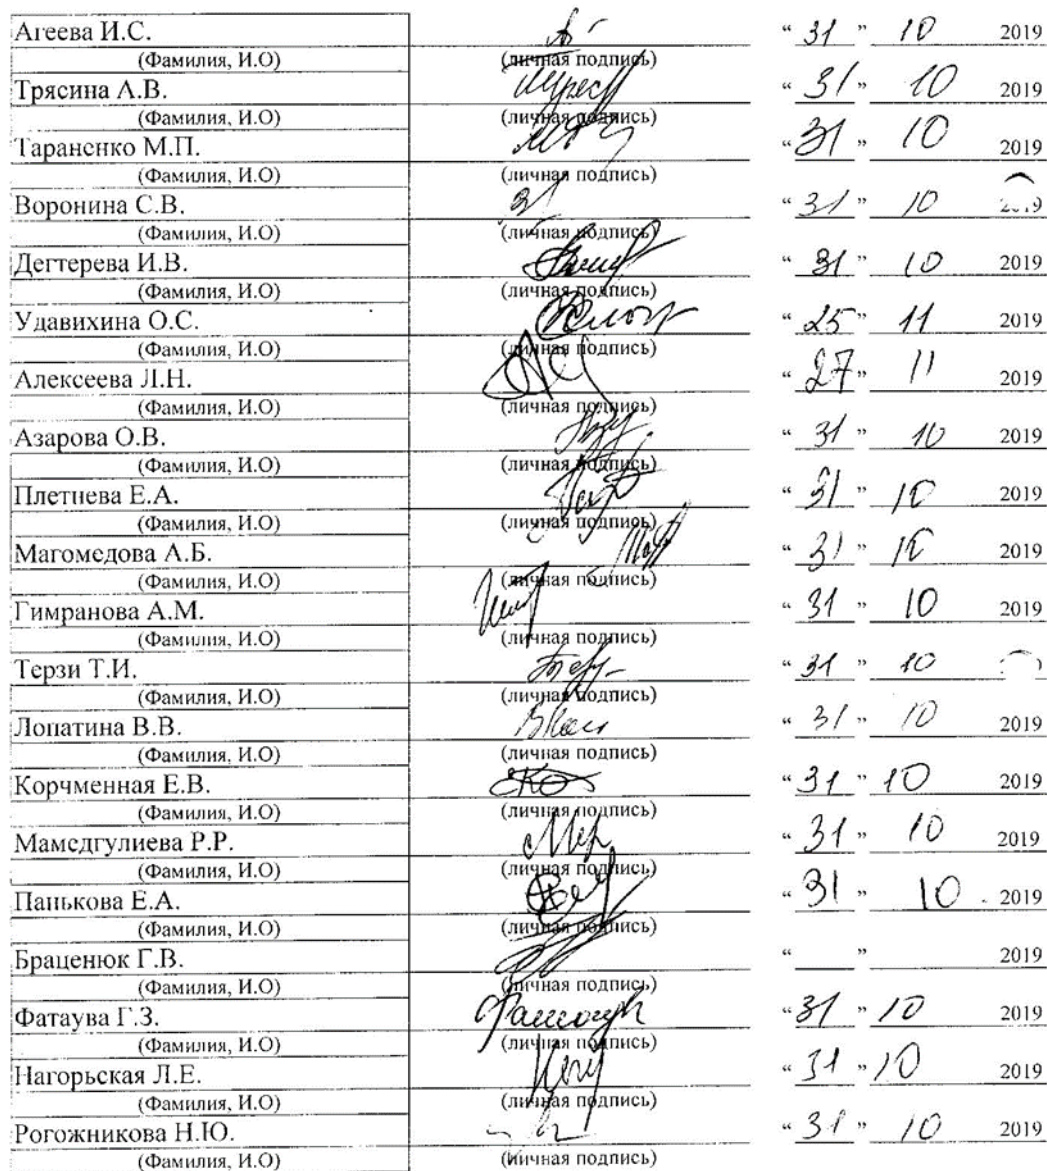 Агеева И.С. “ 31 ” 10 2019
(Фамилия, И.О) (личная подпись)
Трясина А.В. “ 31 ” 10 2019
(Фамилия, И.О) (личная подпись)
Тараненко М.П. “ 31 ” 10 2019
(Фамилия, И.О) (личная подпись)
Воронина С.В. “ 31 ” 10 2019
(Фамилия, И.О) (личная подпись)
Дегтерева И.В. “ 31 ” 10 2019
(Фамилия, И.О) (личная подпись)
Удавихина О.С. “ 25 ” 11 2019
(Фамилия, И.О) (личная подпись)
Алексеева Л.Н. “ 27 ” 11 2019
(Фамилия, И.О) (личная подпись)
Азарова О.В. “ 31 ” 10 2019
(Фамилия, И.О) (личная подпись)
Плетнева Е.А. “ 31 ” 10 2019
(Фамилия, И.О) (личная подпись)
Магомедова А.Б. “ 31 ” 10 2019
(Фамилия, И.О) (личная подпись)
Гимранова А.М. “ 31 ” 10 2019
(Фамилия, И.О) (личная подпись)
Терзи Т.И. “ 31 ” 10
(Фамилия, И.О) (личная подпись)
Лопатина В.В. “ 31 ” 10 2019
(Фамилия, И.О) (личная подпись)
Корчменная Е.В. “ 31 ” 10 2019
(Фамилия, И.О) (личная подпись)
Мамедгулиева Р.Р. “ 31 ” 10 2019
(Фамилия, И.О) (личная подпись)
Панькова Е.А. “ 31 ” 10 2019
(Фамилия, И.О) (личная подпись)
Браценюк Г.В. “ ” 2019
(Фамилия, И.О) (личная подпись)
Фатаува Г.З. “ 31 ” 10 2019
(Фамилия, И.О) (личная подпись)
Нагорьская Л.Е. “ 31 ” 10 2019
(Фамилия, И.О) (личная подпись)
Рогожникова Н.Ю. “ 31 ” 10 2019
(Фамилия, И.О) (личная подпись)